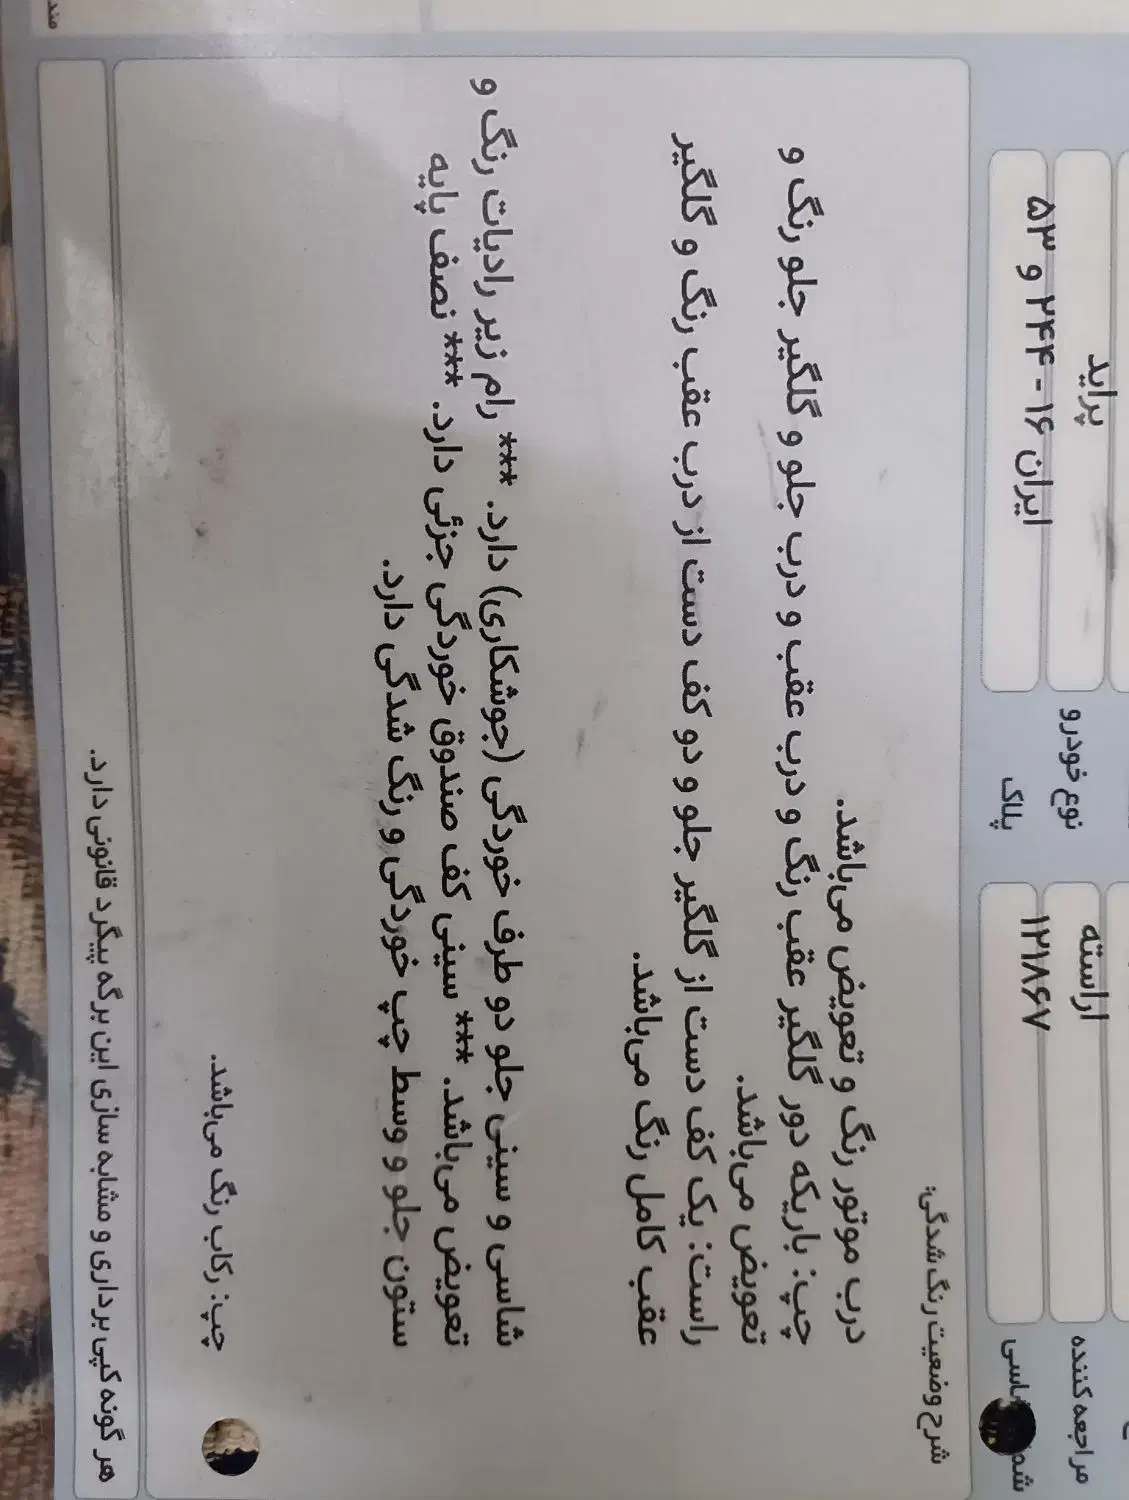 مراجعه کننده
اراسته
نوع خودرو
پراید
۱۲۱۸۶۷
پلاک
ایران ۱۶ - ۲۴۴ و ۵۳
شرح وضعیت رنگ شدگی:
درب موتور رنگ و تعویض می‌باشد.
چپ: باریکه دور گلگیر عقب رنگ و درب عقب و درب جلو و گلگیر جلو رنگ و
تعویض می‌باشد.
راست: یک کف دست از گلگیر جلو و دو کف دست از درب عقب رنگ و گلگیر
عقب کامل رنگ می‌باشد.
شاسی و سینی جلو دو طرف خوردگی (جوشکاری) دارد. *** رام زیر رادیات رنگ و
تعویض می‌باشد. *** سینی کف صندوق خوردگی جزئی دارد. *** نصف پایه
ستون جلو و وسط چپ خوردگی و رنگ شدگی دارد.
چپ: رکاب رنگ می‌باشد.
هر گونه کپی برداری و مشابه سازی این برگه پیگرد قانونی دارد.